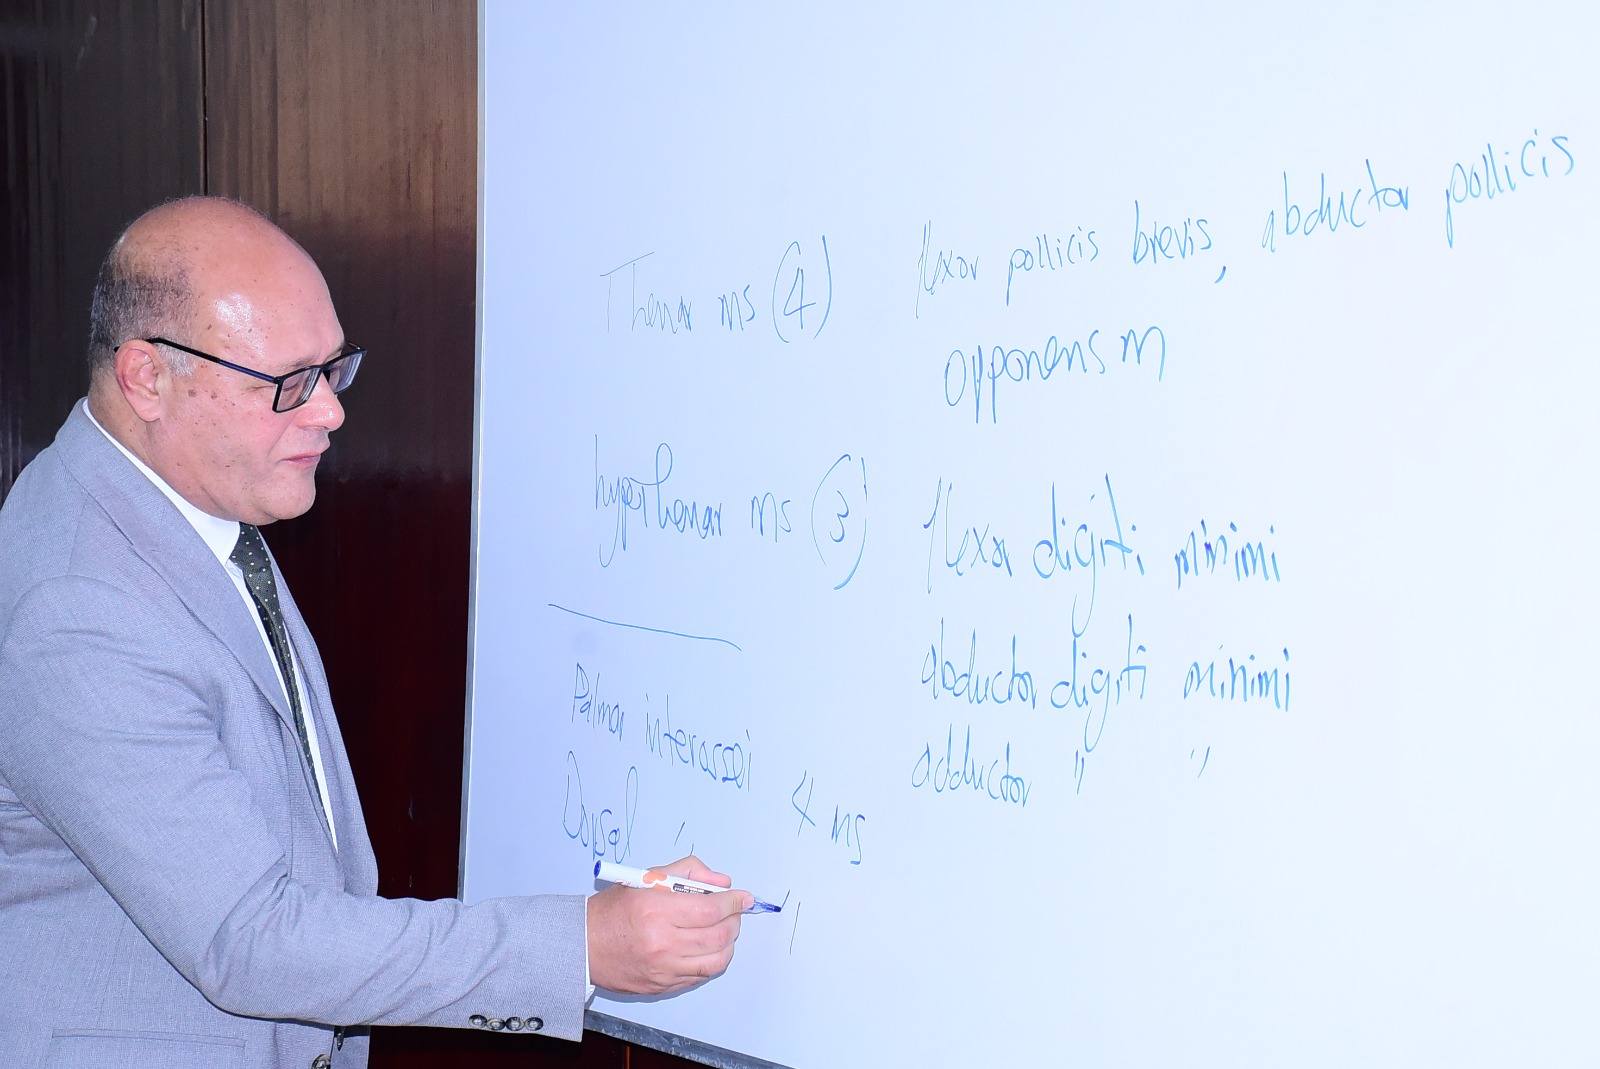 Thenar ms (4) flexor pollicis brevis, abductor pollicis
opponens m
hyperthenar ms (3) flexor digiti minimi
abductor digiti minimi
adductor " "
Palmar interossei
Dorsal " 4 ms